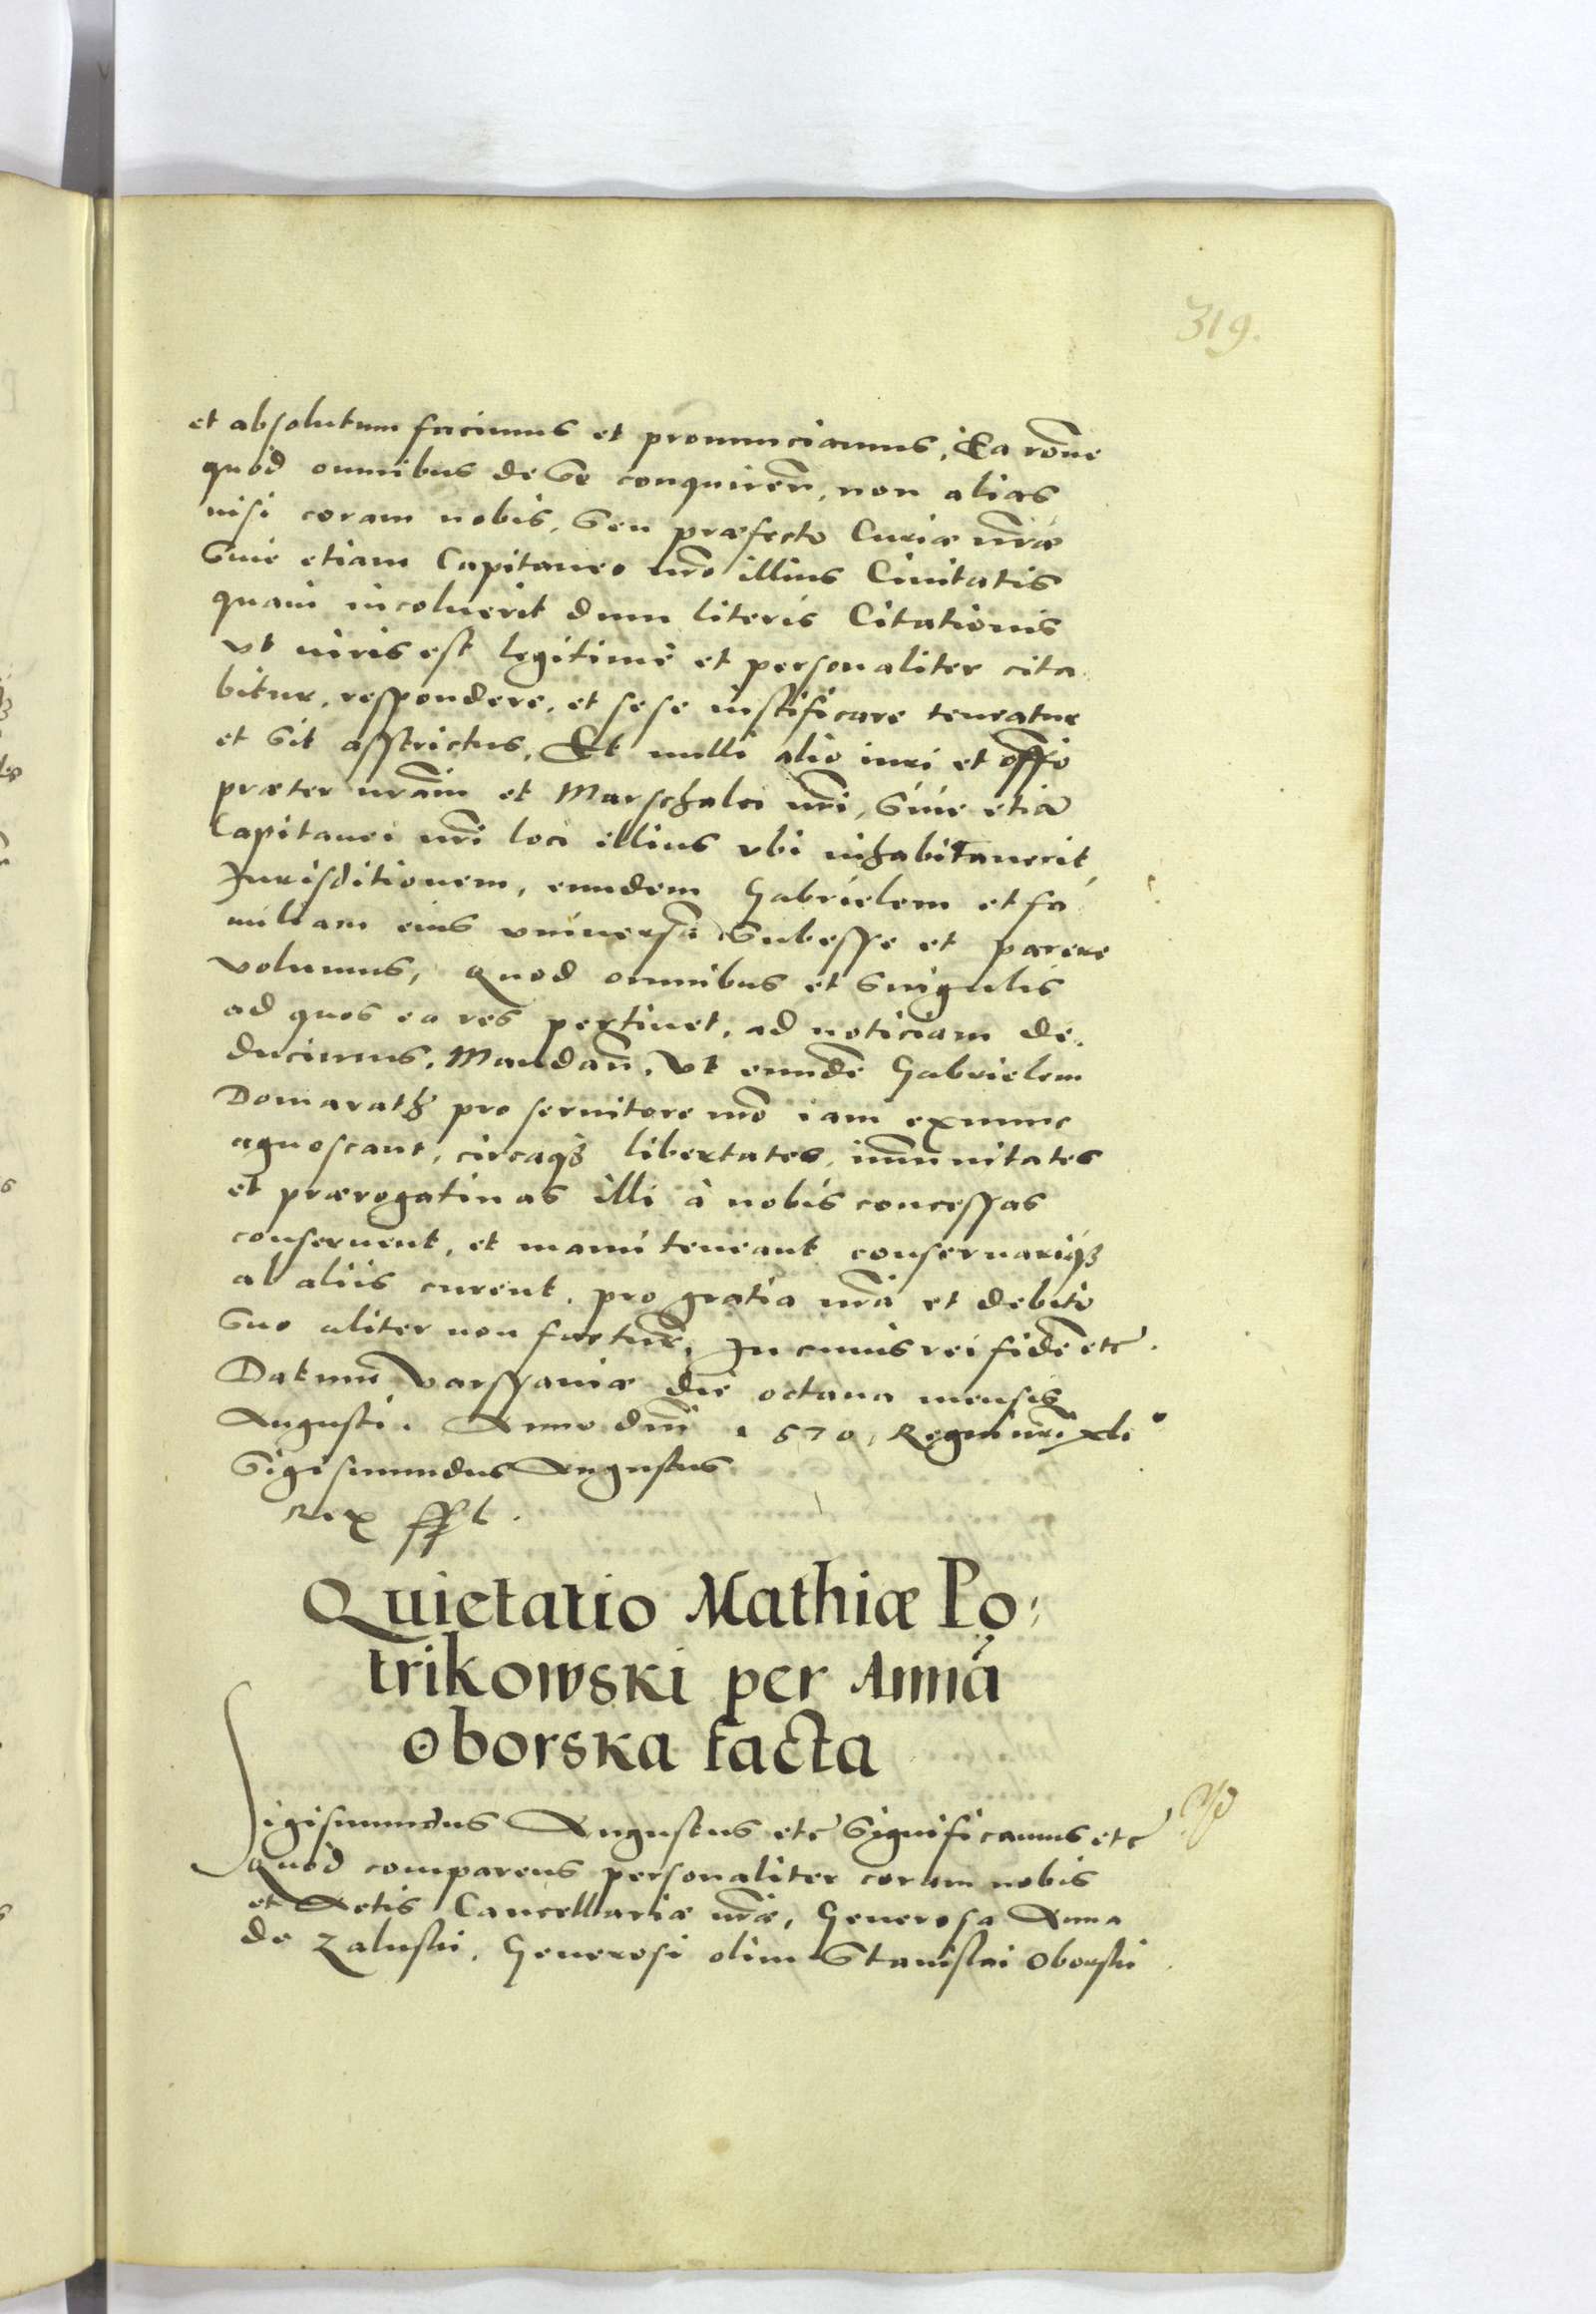 319.
et absolutum facimus et pronunciamus, Ea rõne
quod omnibus de se conquireñ, non alias
nisi coram nobis, seu præfecto Curiæ nr̃æ
siue etiam Capitaneo nr̃o illius Ciuitatis
quam incoluerit dum literis Citationis
vt iuris est legitime et personaliter cita
bitur, respondere, et sese iustificare teneatur
et sit asstrictus, Et nulli alio iuri et offio
præter nr̃am et Marschalci nr̃i, siue etiã
Capitanei nr̃i loci illius vbi inhabitauerit,
Jurisditionem, eundem Gabrielem et fa
miliam eius vniuersã subesse et parere
volumus, Quod omnibus et singulis
ad quos ea res pertinet, ad noticiam de.
ducimus, Mandañ, Vt eundẽ Gabrielem
Domarath pro seruitore nr̃o iam exnunc
agnoscant, circaqȝ libertates, im̃unitates
et prærogatiuas illi à nobis concessas
conseruent, et manuteneant conseruariqȝ
ab aliis curent, pro gratia nr̃a et debito
suo aliter non factur̃, In cuius rei fidẽ etc.
Datum Varssauiæ die octaua mensis
Augusti. Anno dñi 1570, Regni nr̃i xli°
Sigismundus Augustus
Rex sspt.
Quietatio Mathiæ Po:
trikowski per Annã
Oborska facta
Sigismundus Augustus etc Significamus etc
Quod comparens personaliter coram nobis
et Actis Cancellariæ nr̃æ, Generosa Anna
de Zaluski, Generosi olim Stanislai Oborski